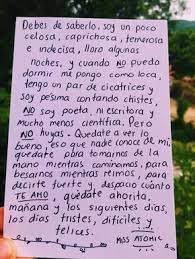 Debes de saberlo, soy un poco
celosa, caprichosa, temerosa
e indecisa, lloro algunas
noches, y cuando NO puedo
dormir me pongo como loca,
tengo un par de cicatrices y
soy pésima contando chistes,
NO soy poeta, ni escritora y
mucho menos científica. Pero
NO huyas. Quedate a ver lo
bueno, eso que nadie conoce de mí,
quedate para tomarnos de la
mano mientras caminamos, para
besarnos mientras reimos, para
decirte fuerte y despacio cuánto
TE AMO, quédate ahorita,
mañana y los siguientes días,
los días tristes, difíciles y
felices.
MISS ATOMIC